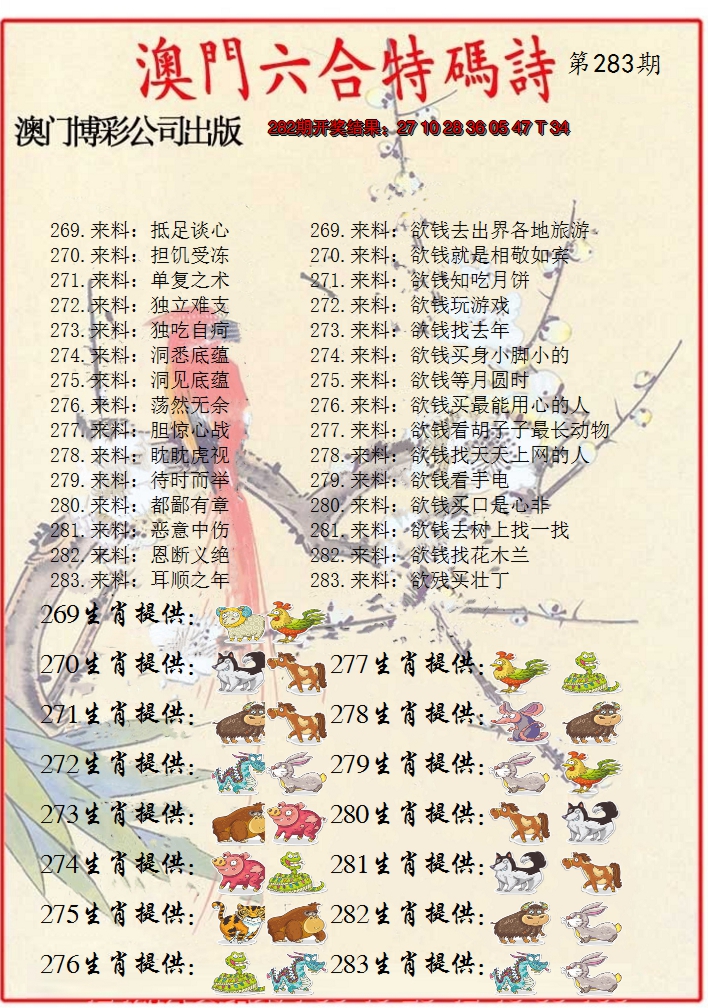 澳門六合特碼詩 第283期
澳门博彩公司出版 282期开奖结果：27 10 28 36 05 47 T 34
269.来料：抵足谈心 269.来料：欲钱去出界各地旅游
270.来料：担饥受冻 270.来料：欲钱就是相敬如宾
271.来料：单复之术 271.来料：欲钱知吃月饼
272.来料：独立难支 272.来料：欲钱玩游戏
273.来料：独吃自疴 273.来料：欲钱找去年
274.来料：洞悉底蕴 274.来料：欲钱买身小脚小的
275.来料：洞见底蕴 275.来料：欲钱等月圆时
276.来料：荡然无余 276.来料：欲钱买最能用心的人
277.来料：胆惊心战 277.来料：欲钱看胡子子最长动物
278.来料：眈眈虎视 278.来料：欲钱找天天上网的人
279.来料：待时而举 279.来料：欲钱看手电
280.来料：都鄙有章 280.来料：欲钱买口是心非
281.来料：恶意中伤 281.来料：欲钱去树上找一找
282.来料：恩断义绝 282.来料：欲钱找花木兰
283.来料：耳顺之年 283.来料：欲残买壮丁
269生肖提供：
270生肖提供： 277生肖提供：
271生肖提供： 278生肖提供：
272生肖提供： 279生肖提供：
273生肖提供： 280生肖提供：
274生肖提供： 281生肖提供：
275生肖提供： 282生肖提供：
276生肖提供： 283生肖提供：